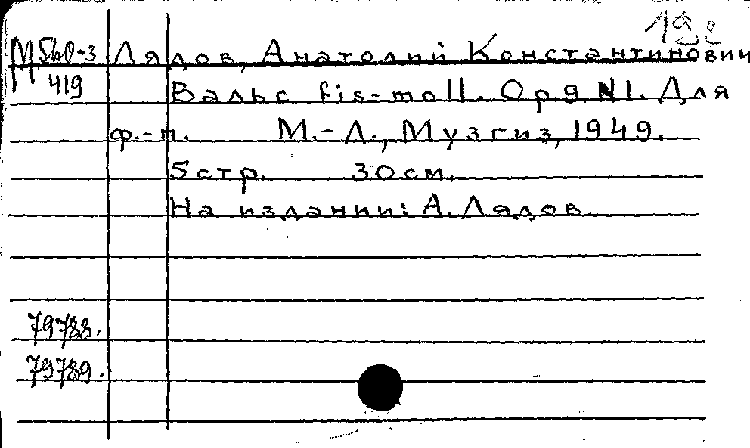 М 560-3 Лядов, Анатолий Константинович
419 Вальс fis-moll. Op 9 N1. Для
ф.-п. М.-Л., Музгиз, 1949.
5 стр. 30 см.
На издании: А. Лядов.
79788.
79789.